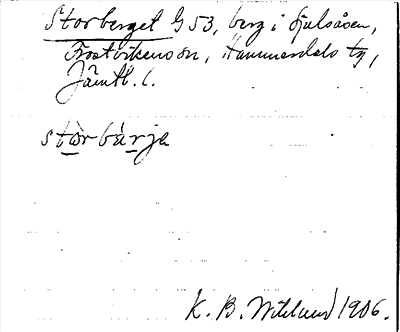 Storberget G 53, berg i Sjulsåsen,
Frostvikens sn, Hammerdals tg,
Jämtl. l.
stòrbárja
K. B. Wiklund 1906.